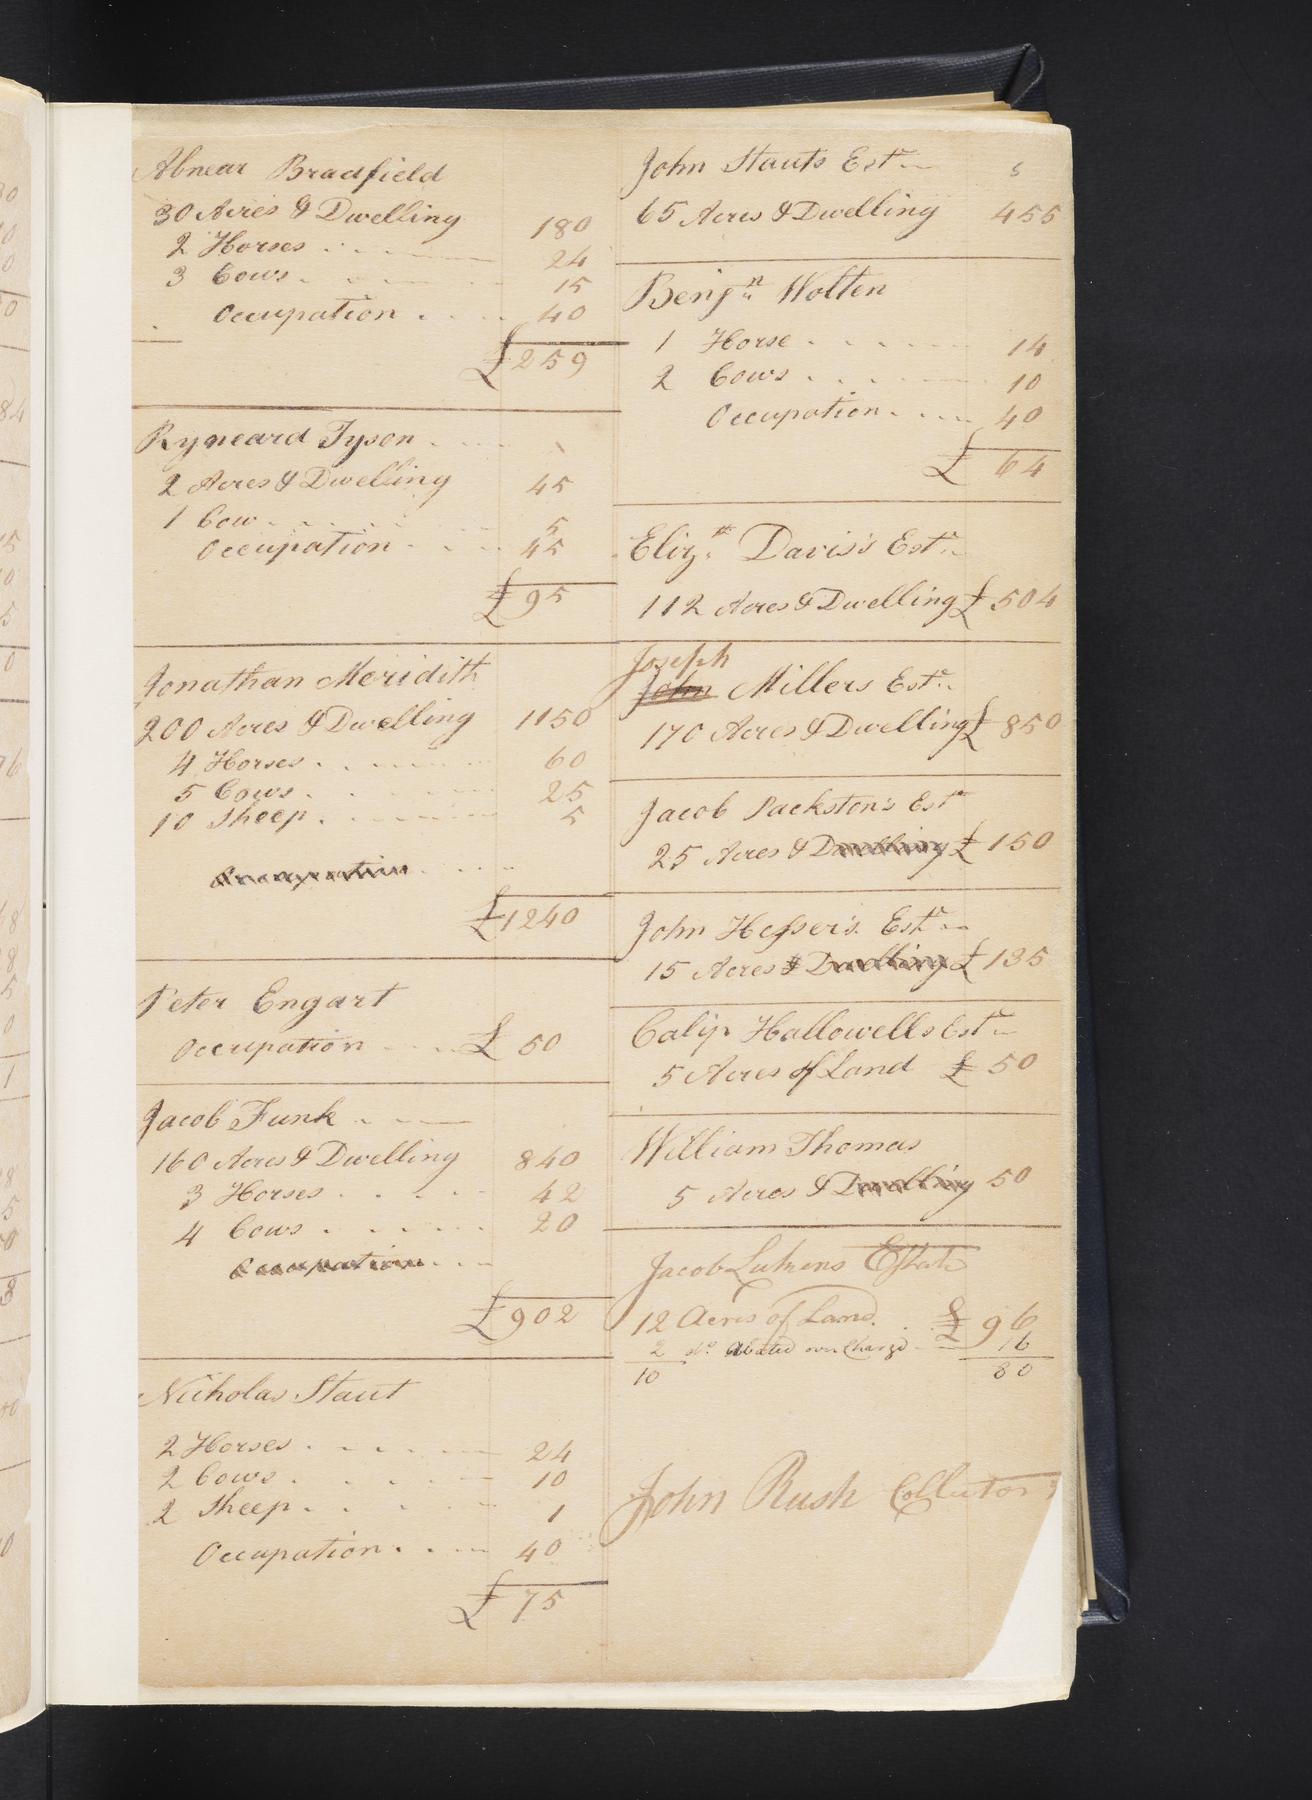 Abnear Bradfield
30 Acres & Dwelling 180
2 Horses 24
3 Cows 15
Occupation 40
£259
Ryneard Tyson
2 Acres & Dwelling 45
1 Cow 5
Occupation 45
£95
Jonathan Meridith
200 Acres & Dwelling 1150
4 Horses 60
5 Cows 25
10 Sheep 5
Occupation
£1240
Peter Engart
Occupation £ 50
Jacob Funk
160 Acres & Dwelling 840
3 Horses 42
4 Cows 20
Occupation
£902
Nicholas Staut
2 Horses 24
2 Cows 10
2 Sheep 1
Occupation 40
£75
John Stauts Este
65 Acres & Dwelling 455
Benjn Wolten
1 Horse 14
2 Cows 10
Occupation 40
£ 64
Elizth Davis's Este
112 Acres & Dwelling £504
Joseph
John Millers Este
170 Acres & Dwelling £ 850
Jacob Packston's Este
25 Acres & Dwelling £150
John Hesser's Este
15 Acres & Dwelling £135
Calip Hallowells Este
5 Acres of Land £ 50
William Thomas
5 Acres & Dwelling 50
Jacob Lukens Estate
12 Acres of Land £ 96
2 do Abated over Charge 16
10 80
John Rush Collector